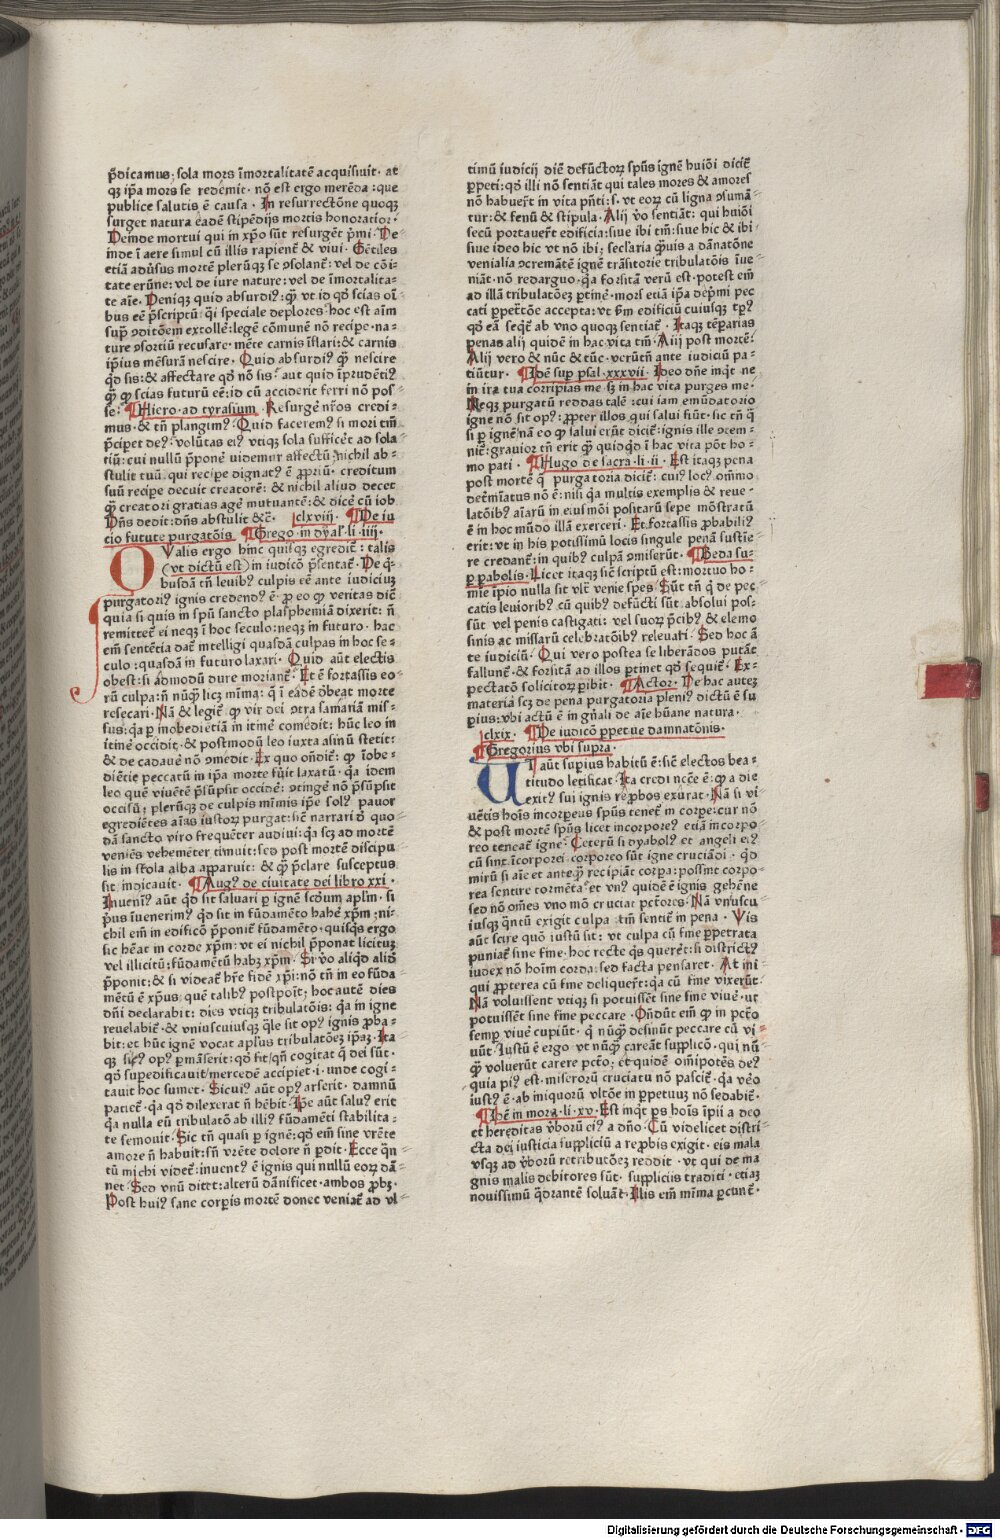 p̄dicamus; sola mors īmortalitatē acquisiuit· at
qꝫ ip̄a mors se redemit· nō est ergo merēda : que
publice salutis ē causa · In resurrectōne quoqꝫ
surget natura eadē stipēdijs mortis honoratior·
Deinde mortui qui in xp̄o sūt resurgēt p̄mi· De⸗
inde ī aere simul cū illis rapient̄ & viui· Gētiles
etiā adūsus mortē plerūqꝫ se ꝯsolant̄: vel de cōi⸗
tate erūne: vel de iure nature: vel de īmortalita⸗
te aīe· Deniqꝫ quid absurdiꝰ: qꝫ vt id qd̄ scias oī⸗
bus eē p̄scriptū: q̄i speciale deplores· hoc est aīm
sup̄ ꝯditōem extollē: legē cōmunē nō recipe· na⸗
ture ꝯsortiū recusare· mēte carnis īflari: & carnis
ip̄ius mēsurā nescire· Quid absurdiꝰ qꝫ nescire
qd̄ sis: & affectare qd̄ nō sis· aut quid īprudētiꝰ
qꝫ qꝫ scias futurū eē: id cū acciderit ferri nō pos⸗
se· ¶Hiero·ad tyrasium· Resurgē nr̄os credi⸗
mus· & tn̄ plangimꝰ· Quid faceremꝰ si mori tm̄
p̄cipet deꝰ: volūtas eiꝰ vtiqꝫ sola sufficēt ad sola
tiū: cui nullū p̄ponē videmur affectū: nichil ab⸗
stulit tuū· qui recipe dignat̄ ē ꝓpriū· creditum
suū recipe decuit creatorē: & nichil aliud decet
qꝫ creatori gratias agē mutuantē: & dicē cū iob
Dn̄s dedit: dn̄s abstulit &c̄· clxviij· ¶De iu
cio future purgatōis· ¶Grego·in dyal̓·li·iiij·
QValis ergo hinc quisqꝫ egredit̄: talis
(vt dictū est) in iudicō p̄sentat̄· De q̄⸗
busdā tn̄ leuibꝰ culpis eē ante iudiciuꝫ
purgatoriꝰ ignis credendꝰ ē· ꝓ eo qꝫ veritas dic̄
quia si quis in spū sancto plasphemiā dixerit: n̄
remittet̄ ei neqꝫ ī hoc seculo: neqꝫ in futuro· hac
em̄ sentētia dat̄ intelligi quasdā culpas in hoc se⸗
culo: quasdā in futuro laxari· Quid aūt electis
obest: si admodū dure moriant̄· Et ē fortassis eo⸗
rū culpa: n̄ nūqꝫ licꝫ mīma: q̄ ī eadē debeat morte
resecari· Nā & legit̄ qꝫ vir dei ꝯtra samariā mis⸗
sus: qa p inobedietiā in itinē comedit: hūc leo in
itinē occidit· & postmodū leo iuxta asinū stetit:
& de cadauē nō ꝯmedit· Ex quo ondit̄: qꝫ īobe⸗
diētie peccatū in ip̄a morte fuit laxatū· qa idem
leo quē viuētē p̄sūpsit occidē: ꝯtingē nō p̄sūpsit
occisū; plerūqꝫ de culpis mīmis ip̄e solꝰ pauor
egrediētes aīas iustoꝝ purgat: sic̄ narrari d̄ quo⸗
dā sancto viro frequēter audiui: qa scꝫ ad mortē
veniēs vehemēter timuit: sed post mortē discipu
lis in stola alba apparuit: & qꝫ p̄clare susceptus
sit indicauit· ¶Augꝰ de ciuitate dei libro xxi·
Inueniꝰ aūt qd̄ sit saluari p ignē scdum apl̄m· si
p̄us īuenerimꝰ qd̄ sit in fūdamēto habē xp̄m; ni⸗
chil em̄ in edificō p̄ponit̄ fūdamēto· quisqs ergo
sic habeat in corde xp̄m: vt ei nichil p̄ponat licituꝫ
vel illicitū; fūdamētū habꝫ xp̄m· Si vo aliqd aliqd̄
p̄ponit: & si videat̄ hr̄e fidē xp̄i: nō tn̄ in eo fūda
mētū ē xp̄us; que talibꝰ postpoīt; hoc autē dies
dn̄i declarabit: dies vtiqꝫ tribulatōis: qa in igne
reuelabit̄· & vniuscuiusqꝫ q̄le sit opꝰ ignis ꝓba⸗
bit: et hūc ignē vocat apl̄us tribulatōeꝫ ip̄aꝫ· Ita
qꝫ sicꝰ opꝰ p̄māserit: qd̄ sit/qn̄ cogitat q̄ dei sūt·
qd̄ supedificauit/mercedē accipiet·i·unde cogi⸗
tauit hoc sumet· Sicuiꝰ aūt opꝰ arserit· damnū
patiet̄· qa qd̄ dilexerat n̄ hēbit· Ip̄e aūt saluꝰ erit
qa nulla eū tribulatō ab illiꝰ fūdamēti stabilita⸗
te semouit· Sic tn̄ quasi p ignē: qd̄ em̄ sine vrēte
amore n̄ habuit: sn̄ vrēte dolore n̄ pdit· Ecce qn̄
tū michi videt̄: inuentꝰ ē ignis qui nullū eoꝝ dā⸗
net· Sed vnū ditet: alterū dānificet· ambos ꝓbꝫ·
Post huiꝰ sane corpis mortē donec veniat̄ ad vl⸗
timū iudicij diē defūctoꝝ spūs ignē huiōi dicit̄
ppeti: qd̄ illi nō sentiāt qui tales mores & amores
nō habuer̄t in vita p̄nti: s· vt eoꝝ cū ligna ꝯsumā⸗
tur: & fenū & stipula· Alij vo sentiāt: qui huiōi
secū portauer̄t edificia: siue ibi tm̄: siue hic & ibi
siue ideo hic vt nō ibi; seclaria q̄uis a dānatōne
venialia ꝯcremātē ignē trāsitorie tribulatōis īue⸗
niāt· nō redarguo· qa forsitā verū est· potest em̄
ad illā tribulatōeꝫ ptinē· mors etiā ip̄a dep̄mi pec
cati ppetrōe accepta: vt s̄m edificiū cuiusqꝫ tpꝰ
qd̄ eā seqt̄ ab vno quoqꝫ sentiat̄· Itaqꝫ tēparias
penas alij quidē in hac vita tm̄· Alij post mortē:
Alij vero & nūc & tūc· verūtn̄ ante iudiciū pa⸗
tiūtur· ¶Idē sup psal·xxxvij· Ideo dn̄e inqt ne
in ira tua corripias me· sꝫ in hac vita purges me·
Neqꝫ purgatū reddas talē: cui iam emūdatorio
igne nō sit opꝰ: ꝓpter illos qui salui fiūt· sic tn̄ q̄
si p ignē: nā eo qꝫ salui erūt dicit̄: ignis ille ꝯtem⸗
nit̄: grauior tn̄ erit qꝫ quidqd̄ ī hac vita pōt ho⸗
mo pati· ¶Hugo de sacra·li·ii· Est itaqꝫ pena
post mortē q̄ purgatoria dicit̄: cuiꝰ locꝰ om̄mo
det̄miatus nō ē: nisi qa multis exemplis & reue⸗
latōibꝰ aīarū in eiusmōi positarū sepe mōstratū
ē in hoc mūdo illā exerceri· Et fortassis ꝓbabiliꝰ
erit: vt in his potissimū locis singule penā sustie⸗
re credant̄: in quibꝰ culpā ꝯmiserūt· ¶Beda su⸗
p pabolis· Licet itaqꝫ sic̄ scriptū est: mortuo ho⸗
mie īpio nulla sit vlt̄ venie spes· Sūt tn̄ q̄ de pec⸗
catis leuioribꝰ cū quibꝰ defūcti sūt absolui pos⸗
sūt vel penis castigati: vel suoꝝ p̄cibꝰ & elemo
sinis ac missarū celebratōibꝰ releuati· Sed hoc ā
te iudiciū· Qui vero postea se liberādos putāt
fallunt̄· & forsitā ad illos ptinet qd̄ sequit̄· Ex⸗
pectatō solicitoꝝ pibit· ¶Actor· De hac auteꝫ
materia scꝫ de pena purgatoria pleniꝰ dictū ē su
pius: vbi actū ē in gn̄ali de aīe hūane natura·
clxix· ¶De iudicō ppetue damnatōnis·
¶Gregorius vbi supra·
UT aūt supius habitū ē: sic̄ electos bea⸗
titudo letificat· Ita credi ncc̄e ē: qꝫ a die
exitꝰ sui ignis reꝓbos exurat· Nā si vi⸗
uētis hoīs incorpeus spūs tenet̄ in corpe: cur nō
& post mortē spūs licet incorporeꝰ etiā incorpo⸗
reo teneat̄ igne· Ceterū si dyabolꝰ et angeli eiꝰ
cū sint īcorporei corporeo sūt igne cruciādi· qd̄
mirū si aīe et anteqꝫ recipiāt corpa: possint corpo⸗
rea sentire tormēta· et vnꝰ quidē ē ignis gehēne
sed nō om̄es vno mō cruciat pctores· Nā vniuscu⸗
iusqꝫ qn̄tū exigit culpa tm̄ sentit̄ in pena· Vis
aūt scire quō iustū sit: vt culpa cū fine ppetrata
puniat̄ sine fine· hoc recte q̄s querer̄t: si districtꝰ
iudex nō hoīm corda: sed facta pensaret· At ini
qui ꝓpterea cū fine deliquer̄t: qa cū fine vixerūt
Nā voluissent vtiqꝫ si potuissēt sine fine viuē· ut
potuissēt sine fine peccare· Ondūt em̄ qꝫ in pctō
semp viuē cupiūt· q̄ nūqꝫ desinūt peccare cū vi⸗
uūt· Iustū ē ergo vt nūqꝫ careāt supplicō· qui nū
qꝫ voluerūt carere pctō; et quidē om̄ipotēs deꝰ
quia piꝰ est· miseroꝝ cruciatu nō pascit̄· qa veo
iustꝰ ē· ab iniquoꝝ vltōe in ppetuuꝫ nō sedabit̄·
¶Idē in mora·li·xv· Est inqt ps hoīs īpii a deo
et hereditas v̄boꝝ eiꝰ a dn̄o· Cū videlicet distri⸗
cta dei iusticia suppliciū a reꝓbis exigit· eis mala
vsqꝫ ad v̄boꝝ retributōeꝫ reddit· vt qui de ma
gnis malis debitores sūt· suppliciis traditi· etiaꝫ
nouissimū q̄drantē soluāt· Illis em̄ mīma pcunt̄·
Digitalisierung gefördert durch die Deutsche Forschungsgemeinschaft · DFG